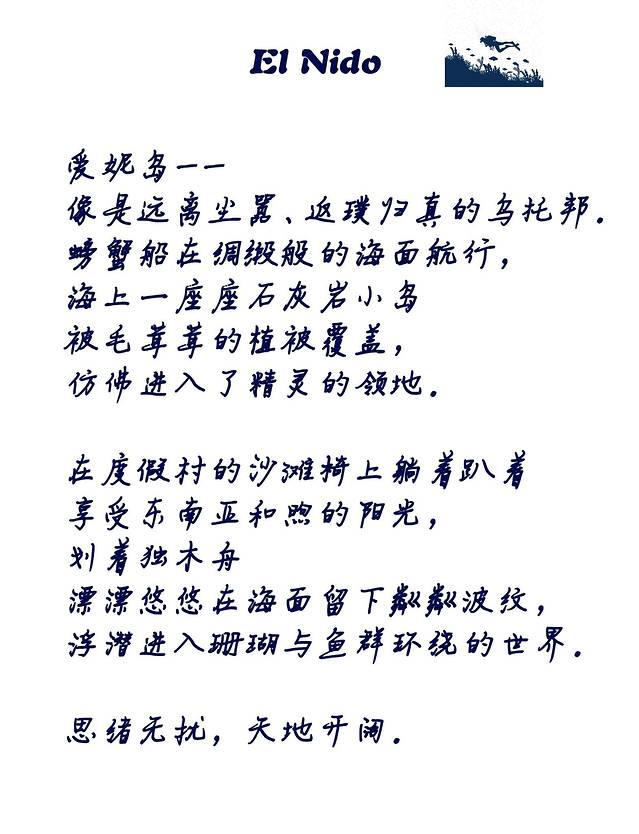 El Nido
爱妮岛——
像是远离尘嚣、返璞归真的乌托邦.
螃蟹船在绸缎般的海面航行，
海上一座座石灰岩小岛
被毛茸茸的植被覆盖，
仿佛进入了精灵的领地.
在度假村的沙滩椅上躺着趴着
享受东南亚和煦的阳光，
划着独木舟
漂漂悠悠在海面留下粼粼波纹，
浮潜进入珊瑚与鱼群环绕的世界.
思绪无扰，天地开阔.